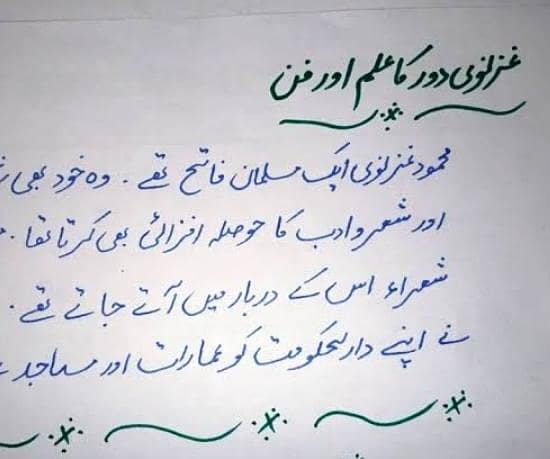 غزنوی دور کا علم اور فن
محمود غزنوی ایک مسلمان فاتح تھے۔ وہ خود بھی
اور شعر و ادب کا حوصلہ افزائی بھی کرتا تھا۔
شعراء اس کے دربار میں آتے جاتے تھے۔
نے اپنے دارلحکومت کو عمارات اور مساجد